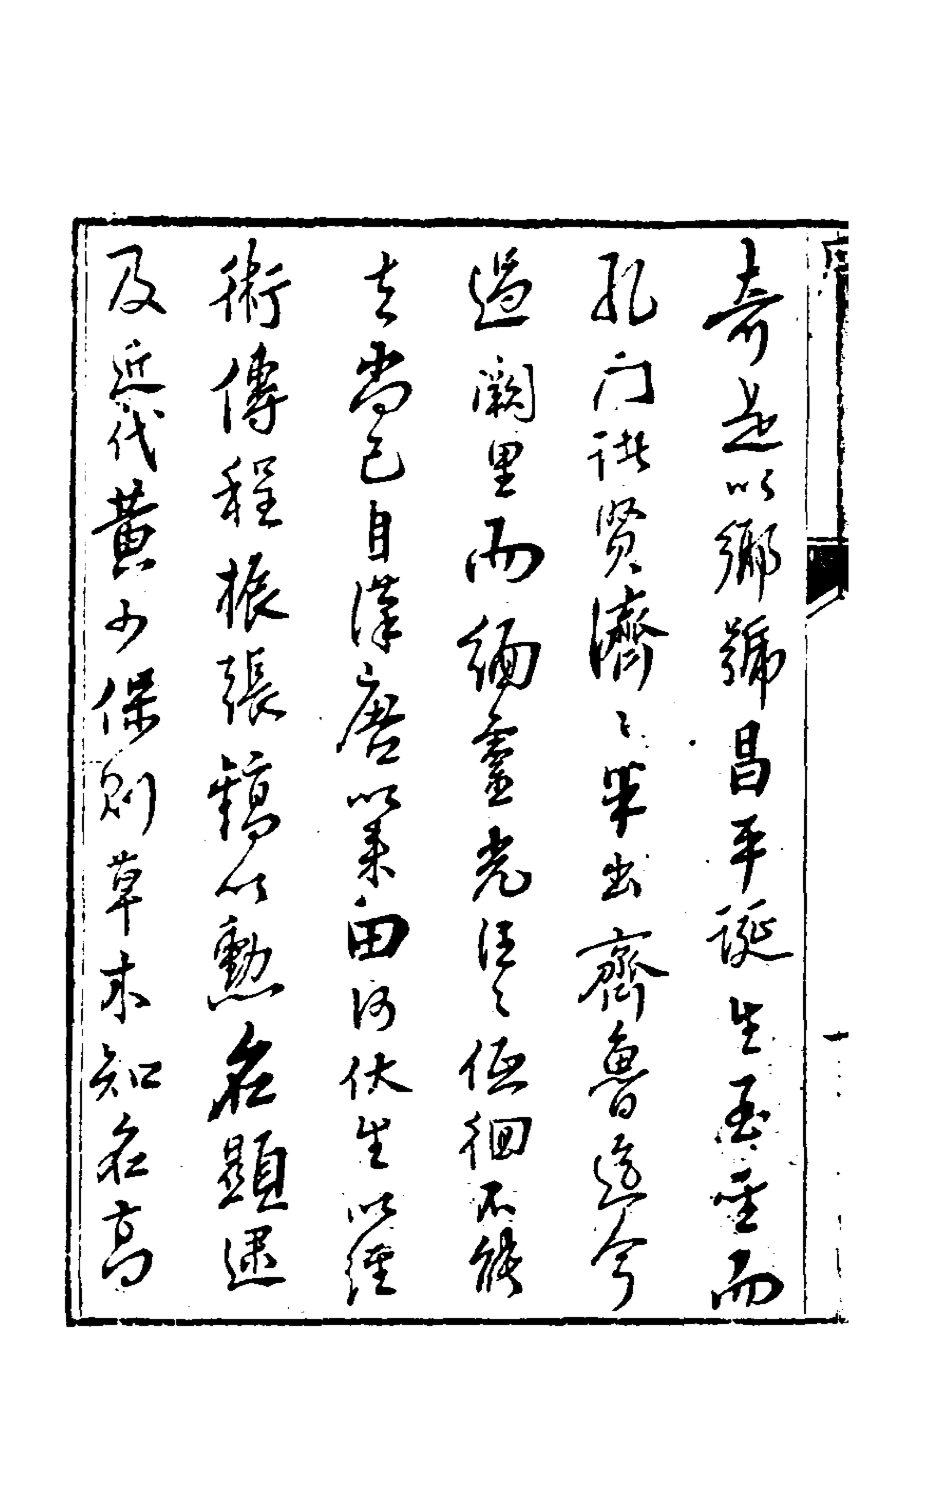 奇是以鄉號昌平誕生至聖而
孔門諸賢濟〻畢出齊魯迄今
過闕里而緬靈光往〻低徊不能
去尚已自漢唐以來田何伏生以經
術傳程振張鎬以勳名顯逮
及近代黃少保則草木知名高
序
一